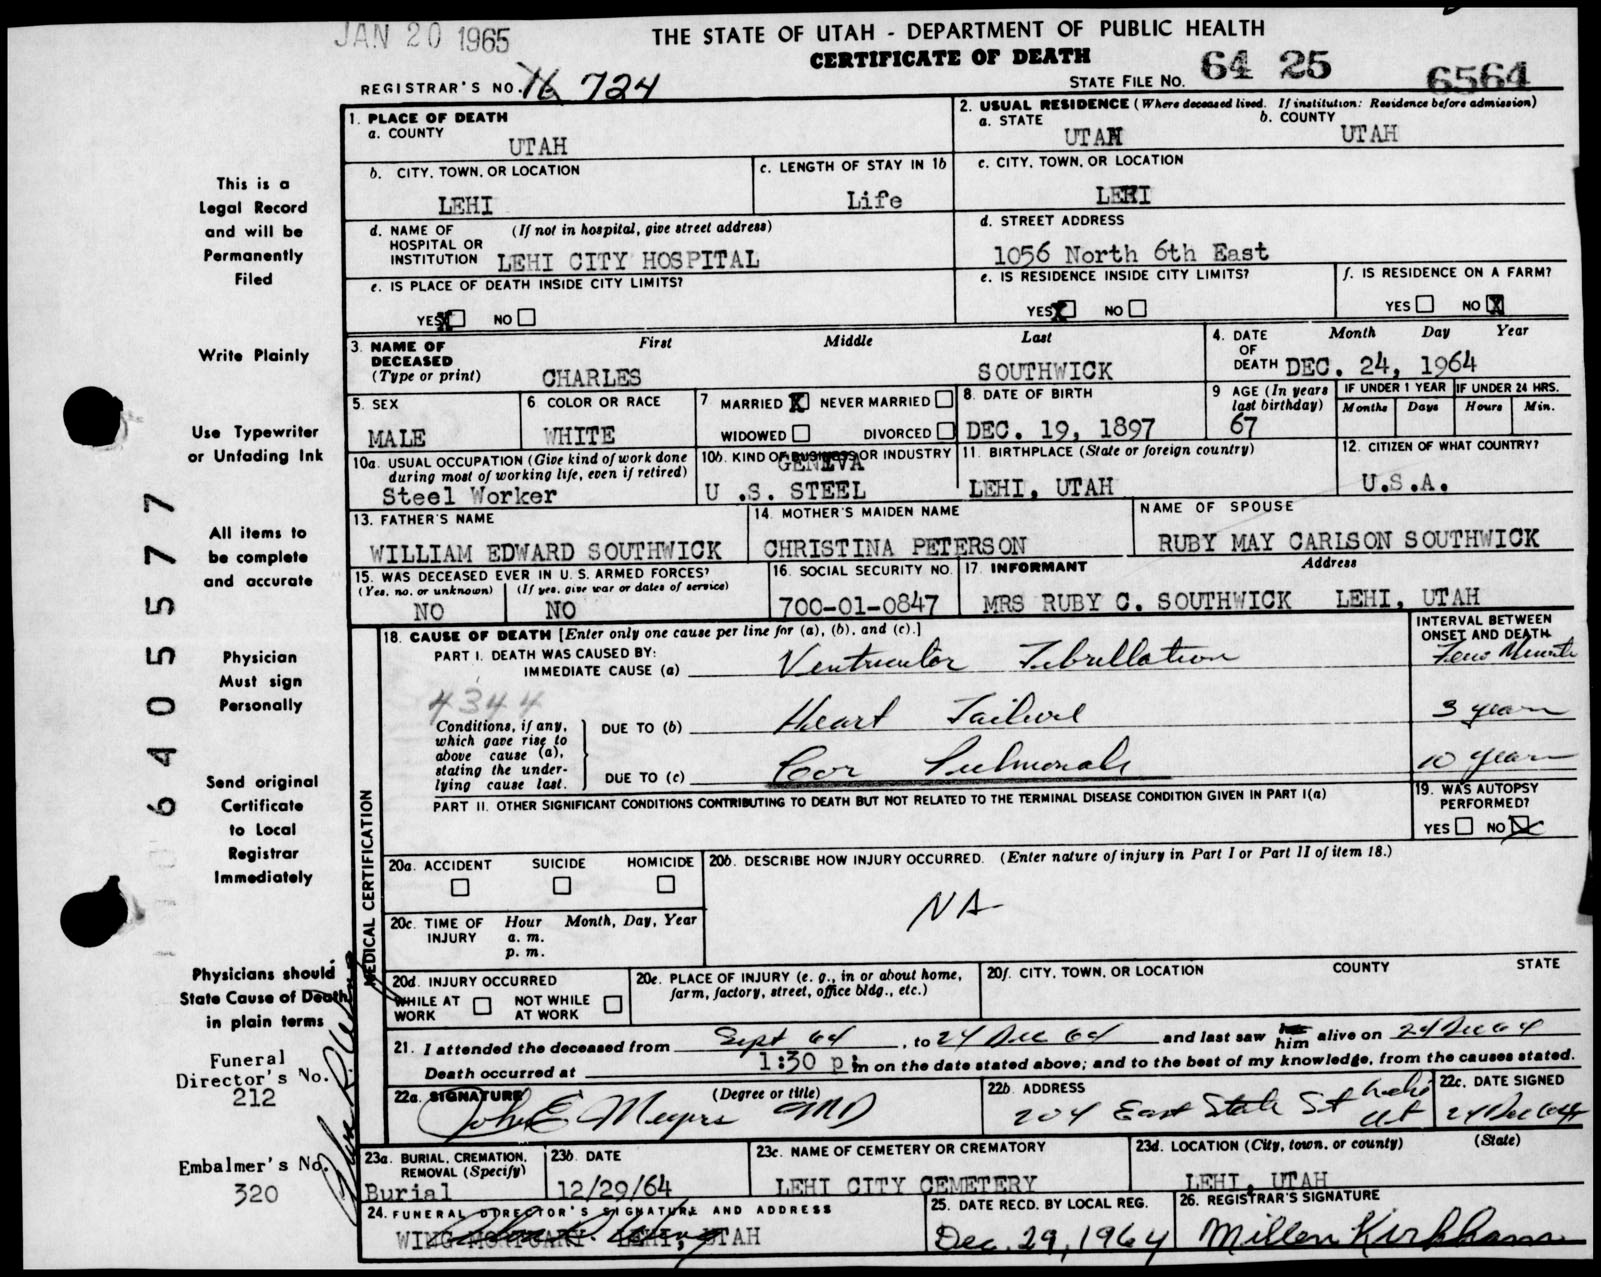 JAN 20 1965
THE STATE OF UTAH - DEPARTMENT OF PUBLIC HEALTH
CERTIFICATE OF DEATH
REGISTRAR'S NO. 724
STATE FILE NO. 64 25 6564
1. PLACE OF DEATH
a. COUNTY
UTAH
2. USUAL RESIDENCE (Where deceased lived. If institution: Residence before admission)
a. STATE b. COUNTY
UTAH UTAH
b. CITY, TOWN, OR LOCATION
LEHI
c. LENGTH OF STAY IN 1b
Life
c. CITY, TOWN, OR LOCATION
LEHI
d. NAME OF (If not in hospital, give street address)
HOSPITAL OR
INSTITUTION LEHI CITY HOSPITAL
d. STREET ADDRESS
1056 North 6th East
e. IS PLACE OF DEATH INSIDE CITY LIMITS?
YES X NO
e. IS RESIDENCE INSIDE CITY LIMITS?
YES X NO
f. IS RESIDENCE ON A FARM?
YES NO X
3. NAME OF DECEASED (Type or print)
First Middle Last
CHARLES SOUTHWICK
4. DATE OF DEATH Month Day Year
DEC. 24, 1964
5. SEX
MALE
6 COLOR OR RACE
WHITE
7 MARRIED X NEVER MARRIED
WIDOWED DIVORCED
8. DATE OF BIRTH
DEC. 19, 1897
9 AGE (In years last birthday)
67
IF UNDER 1 YEAR IF UNDER 24 HRS.
Months Days Hours Min.
10a. USUAL OCCUPATION (Give kind of work done
during most of working life, even if retired)
Steel Worker
10b. KIND OF BUSINESS OR INDUSTRY
GENEVA
U .S. STEEL
11. BIRTHPLACE (State or foreign country)
LEHI, UTAH
12. CITIZEN OF WHAT COUNTRY?
U.S.A.
13. FATHER'S NAME
WILLIAM EDWARD SOUTHWICK
14. MOTHER'S MAIDEN NAME
CHRISTINA PETERSON
NAME OF SPOUSE
RUBY MAY CARLSON SOUTHWICK
15. WAS DECEASED EVER IN U. S. ARMED FORCES?
(Yes, no. or unknown) (If yes, give war or dates of service)
NO NO
16. SOCIAL SECURITY NO.
700-01-0847
17. INFORMANT Address
MRS RUBY C. SOUTHWICK LEHI, UTAH
18. CAUSE OF DEATH [Enter only one cause per line for (a), (b), and (c).]
INTERVAL BETWEEN
ONSET AND DEATH
PART I. DEATH WAS CAUSED BY:
IMMEDIATE CAUSE (a) Ventricular Fibrillation Few Minutes
4344
Conditions, if any,
which gave rise to
above cause (a),
stating the under-
lying cause last.
DUE TO (b) Heart Failure 3 years
DUE TO (c) Cor Pulmonale 10 years
PART II. OTHER SIGNIFICANT CONDITIONS CONTRIBUTING TO DEATH BUT NOT RELATED TO THE TERMINAL DISEASE CONDITION GIVEN IN PART I(a)
19. WAS AUTOPSY
PERFORMED?
YES NO X
MEDICAL CERTIFICATION
20a. ACCIDENT SUICIDE HOMICIDE
20b. DESCRIBE HOW INJURY OCCURRED. (Enter nature of injury in Part I or Part II of item 18.)
NA
20c. TIME OF INJURY Hour Month, Day, Year
a. m.
p. m.
20d. INJURY OCCURRED
WHILE AT WORK NOT WHILE AT WORK
20e. PLACE OF INJURY (e. g., in or about home,
farm, factory, street, office bldg., etc.)
20f. CITY, TOWN, OR LOCATION COUNTY STATE
21. I attended the deceased from Sept 64, to 24 Dec 64 and last saw her him alive on 24 Dec 64
Death occurred at 1:30 p m on the date stated above; and to the best of my knowledge, from the causes stated.
22a. SIGNATURE (Degree or title)
John E Meyers MD
22b. ADDRESS
204 East State St Lehi Ut
22c. DATE SIGNED
24 Dec 64
23a. BURIAL, CREMATION,
REMOVAL (Specify)
Burial
23b. DATE
12/29/64
23c. NAME OF CEMETERY OR CREMATORY
LEHI CITY CEMETERY
23d. LOCATION (City, town, or county) (State)
LEHI, UTAH
24. FUNERAL DIRECTOR'S SIGNATURE AND ADDRESS
WING MORTUARY. LEHI, UTAH
25. DATE RECD. BY LOCAL REG.
Dec. 29, 1964
26. REGISTRAR'S SIGNATURE
Millen Kirkham
This is a
Legal Record
and will be
Permanently
Filed
Write Plainly
Use Typewriter
or Unfading Ink
All items to
be complete
and accurate
Physician
Must sign
Personally
Send original
Certificate
to Local
Registrar
Immediately
Physicians should
State Cause of Death
in plain terms
Funeral
Director's No.
212
Embalmer's No.
320
64055577